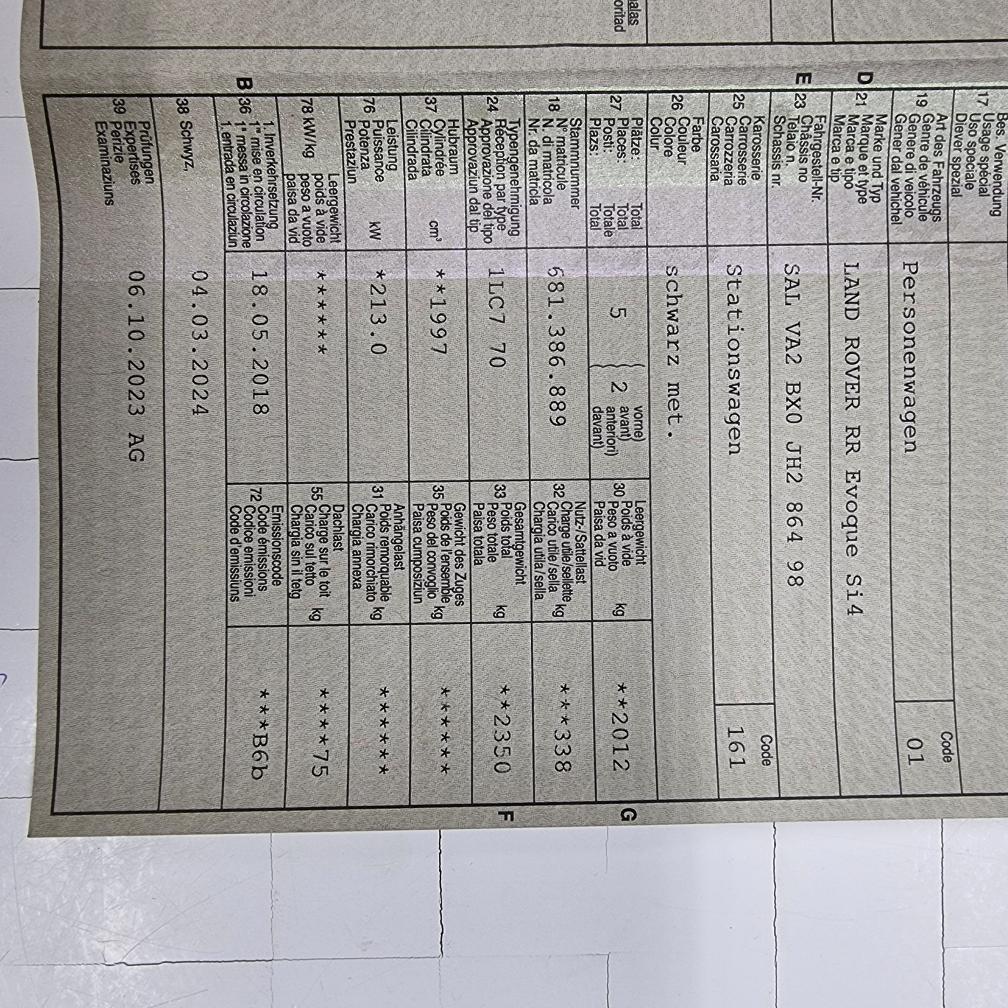 alas
oritad
Bes. Verwendung
17 Usage spécial
Uso speciale
Diever spezial
Art des Fahrzeugs
19 Genre de véhicule
Genere di veicolo
Gener dal vehichel
Personenwagen
Code
01
Marke und Typ
D 21 Marque et type
Marca e tipo
Marca e tip
LAND ROVER RR Evoque Si4
Fahrgestell-Nr.
E 23 Châssis no
Telaio n.
Schassis nr.
SAL VA2 BX0 JH2 864 98
Karosserie
25 Carrosserie
Carrozzeria
Carossaria
Stationswagen
Code
161
Farbe
26 Couleur
Colore
Colur
schwarz met.
Plätze: Total
27 Places: Total
Posti: Totale
Plazs: Total
5 ( 2
vorne)
avant)
anteriori)
davant)
Leergewicht
30 Poids à vide
Peso a vuoto kg
Paisa da vid
**2012 G
Stammnummer
18 N° matricule
N. di matricola
Nr. da matricla
681.386.889
Nutz-/Sattellast
32 Charge utile/sellette
Carico utile/sella kg
Chargia utila/sella
***338
Typengenehmigung
24 Réception par type
Approvazione del tipo
Approvaziun dal tip
1LC7 70
Gesamtgewicht
33 Poids total
Peso totale kg
Paisa totala
**2350 F
Hubraum
37 Cylindrée
Cilindrata cm³
Cilindrada
**1997
Gewicht des Zuges
35 Poids de l'ensemble
Peso del convoglio kg
Paisa cumposiziun
******
Leistung
76 Puissance
Potenza kW
Prestaziun
*213.0
Anhängelast
31 Poids remorquable
Carico rimorchiato kg
Chargia annexa
******
Leergewicht
78 kW/kg poids à vide
peso a vuoto
paisa da vid
******
Dachlast
55 Charge sur le toit
Carico sul tetto kg
Chargia sin il tetg
****75
1. Inverkehrsetzung
B 36 1re mise en circulation
1a messa in circolazione
1. entrada en circulaziun
18.05.2018
Emissionscode
72 Code émissions
Codice emissioni
Code d'emissiuns
***B6b
38 Schwyz,
04.03.2024
Prüfungen
39 Expertises
Perizie
Examinaziuns
06.10.2023 AG